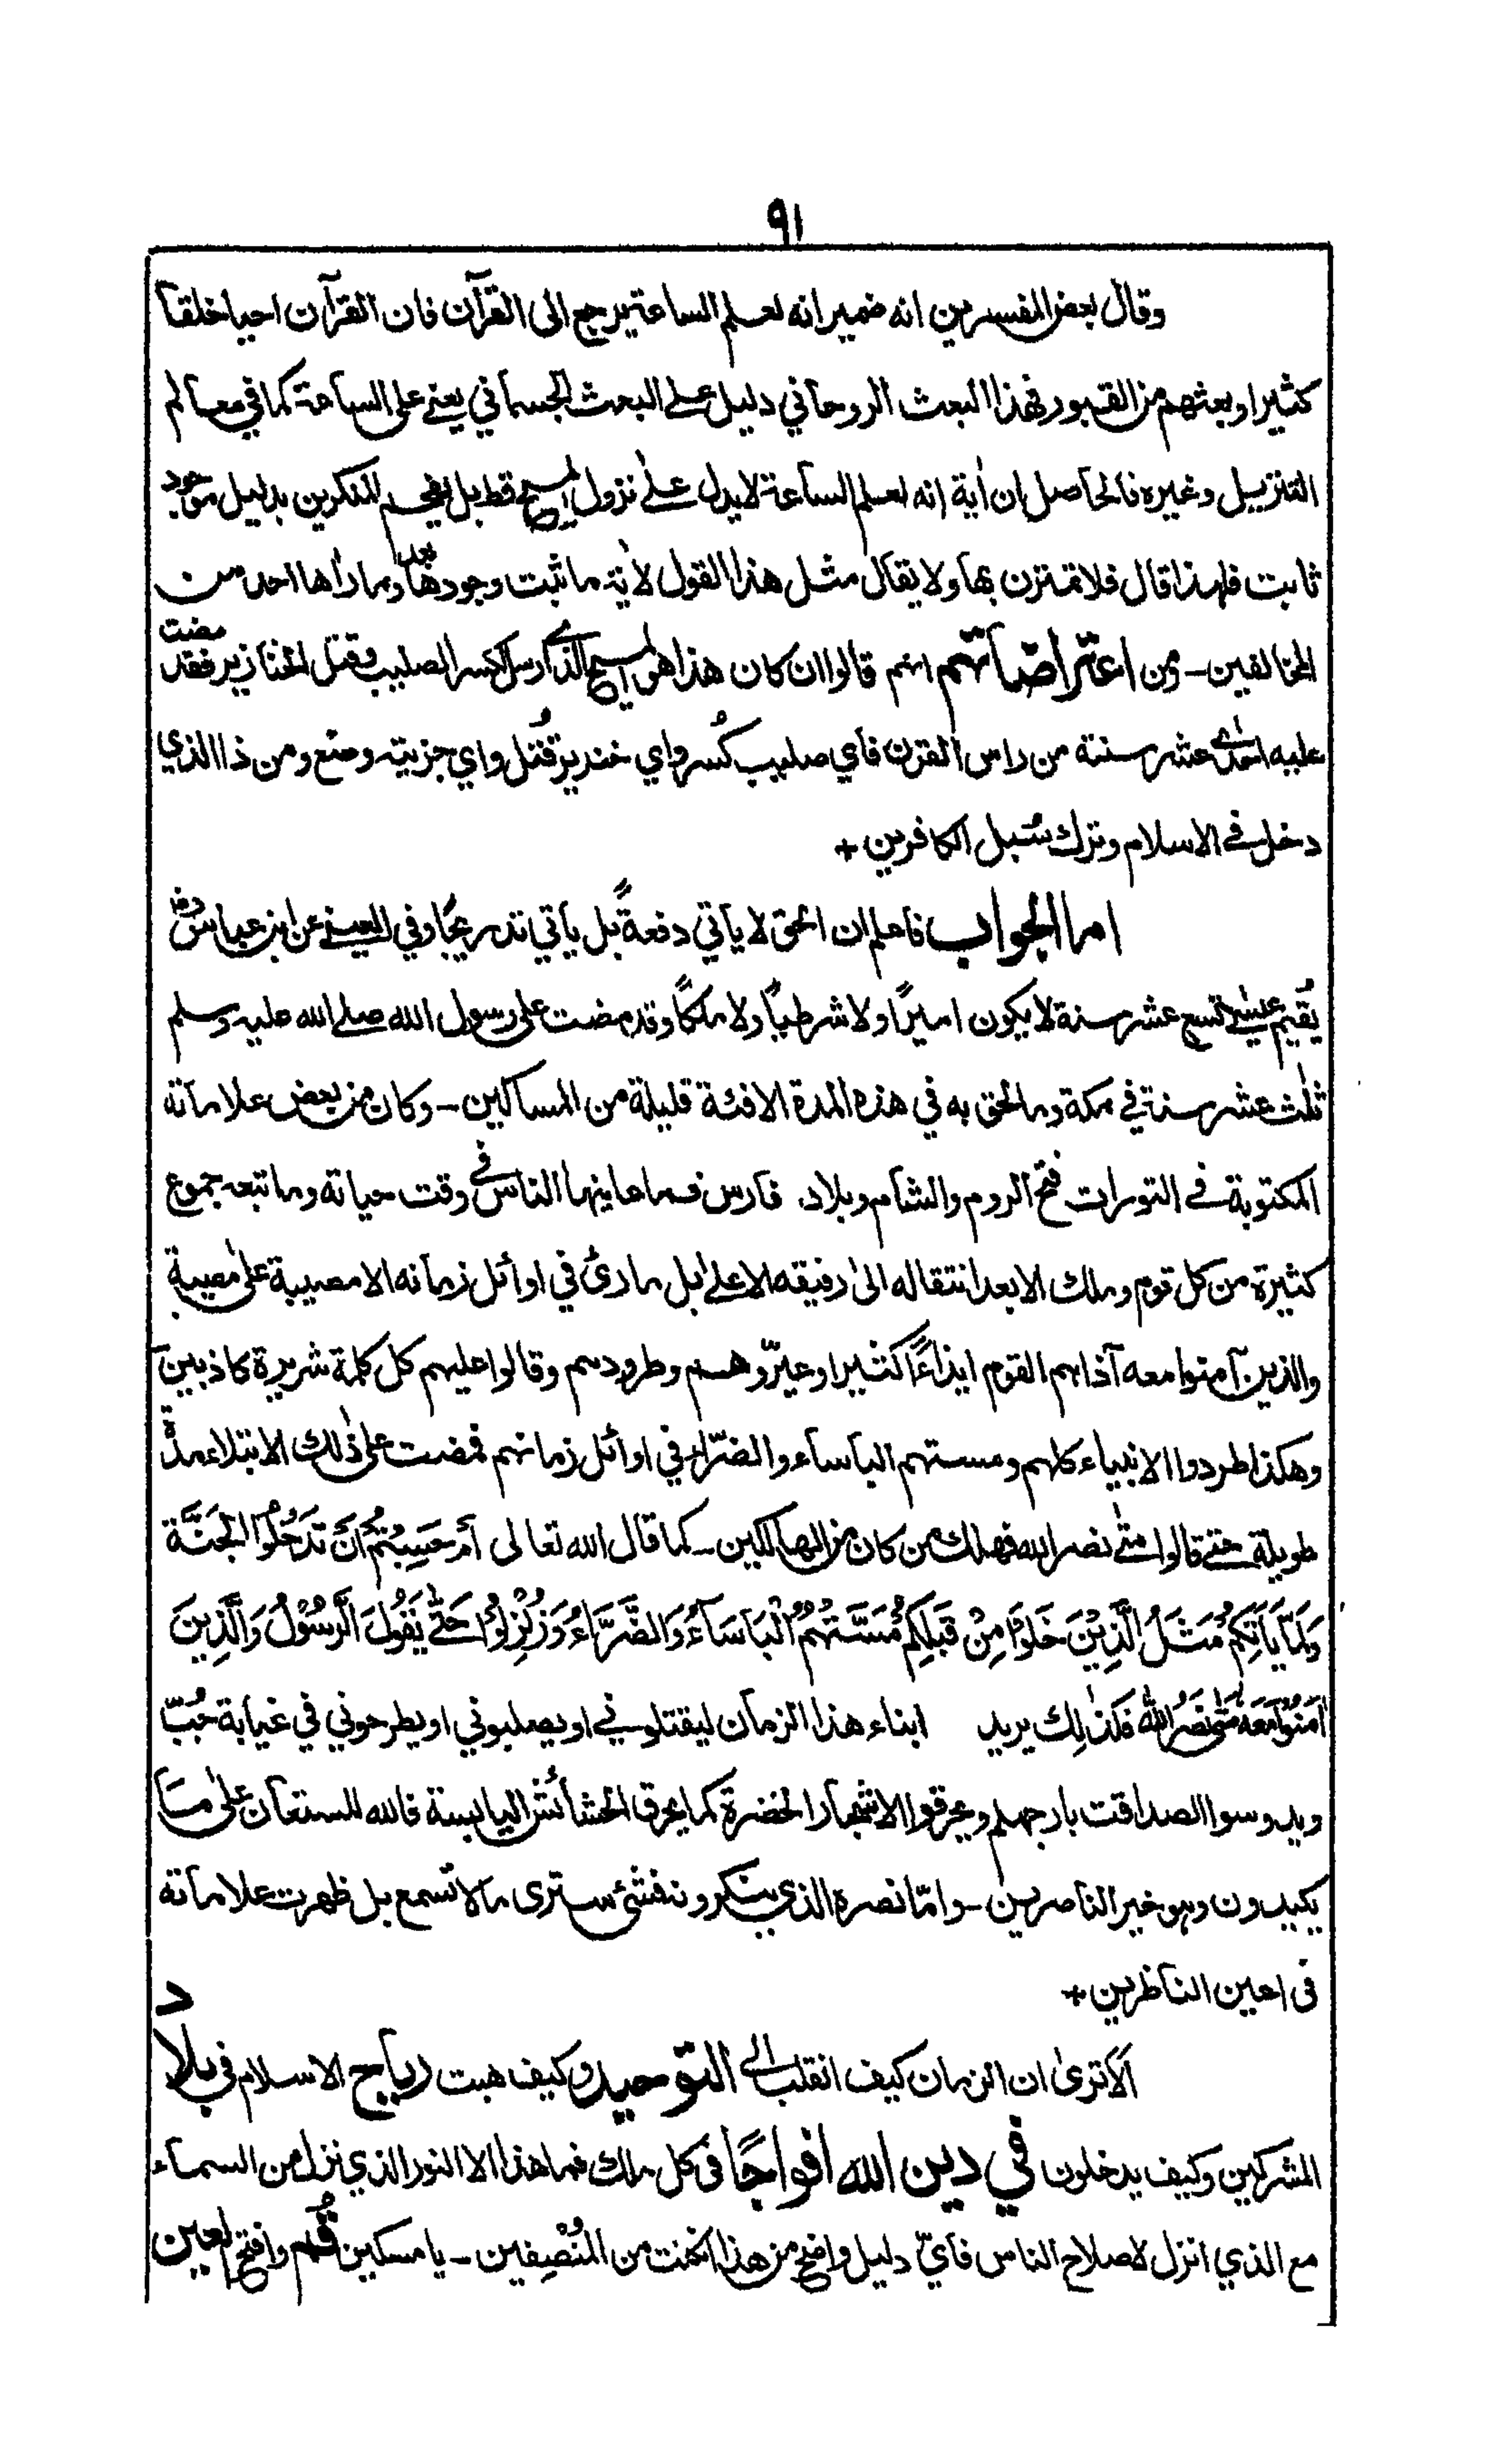 ٩١
وقال بعض المفسرين انه ضمير انه لعلم الساعة يرجع الى القرآن فان القرآن احيا خلقا
كثيرا وبعثهم من القبور فهذا البعث الروحاني دليل على البعث الجسماني يعني على الساعة كما في معالم
التنزيل وغيره فالحاصل ان اٰية انه لعلم الساعة لا يدل على نزول المسيح قط بل يفحم المنكرين بدليل موجود
ثابت فلهذا قال فلا تمترن بها ولا يقال مثل هذا القول لاٰية ما ثبت وجودها بعد وما راٰها احد من
المخالفين - ومن اعتراضاتهم انهم قالوا ان كان هذا هو المسيح الذي ارسل لكسر الصليب وقتل الخنازير فقد مضت
عليه احدى عشر سنة من راس القرن فاي صليب كُسر واي خنزير قُتل واي جزية وضع ومن ذا الذي
دخل في الاسلام وترك سُبل الكافرين +
اما الجواب فاعلم ان الحق لا يأتي دفعةً بل يأتي تدريجًا وفي العيني عن ابن عباس رض
يُقيم عيسٰى تسع عشر سنة لا يكون اميرًا ولا شرطيًا ولا ملكًا وقد مضت على رسول الله صلى الله عليه وسلم
ثلٰث عشر سنة في مكة وما لحق به في هذه المدة الا فئة قليلة من المساكين - وكان من بعض علاماته
المكتوبة في التورات فتح الروم والشام وبلاد فارس فما عاينها الناس في وقت حياته وما تبعه جموع
كثيرة من كل قوم وملك الا بعد انتقاله الىٰ رفيقه الاعلى بل ما رأى في اوائل زمانه الا مصيبة علىٰ مصيبة
والذين آمنوا معه آذاهم القوم ايذاءً كثيرا وعيّروهم وطردوهم وقالوا عليهم كل كلمة شريرة كاذبين
وهكذا طردوا الانبياء كلهم ومستهم البأساء والضرّاء في اوائل زمانهم فمضت على ذٰلك الابتلاء مدّة
طويلة حتى قالوا متى نصر الله فهلك من كان من الهالكين - كما قال الله تعالى أَمْ حَسِبْتُمْ أَنْ تَدْخُلُوا الْجَنَّةَ
وَلَمَّا يَأْتِكُمْ مَثَلُ الَّذِيْنَ خَلَوْا مِنْ قَبْلِكُمْ مَسَّتْهُمُ الْبَأْسَاءُ وَالضَّرَّاءُ وَزُلْزِلُوْا حَتّٰى يَقُوْلَ الرَّسُوْلُ وَالَّذِينَ
اٰمَنُوْا مَعَهُ مَتٰى نَصْرُ اللهِ فَكَذٰلِكَ يريد ابناء هذا الزمان ليقتلوني او يصلبوني او يطرحوني في غيابة جُبّ
ويدوسوا الصداقت بارجلهم ويحرقوا الاشجار الخضرة كما يحرق الحشائش اليابسة فالله المستعان علىٰ ما
يكيدون وهو خير الناصرين - وامّا نصره الذي ينكرونه فشئ سترى ما لا تسمع بل ظهرت علاماته
في اعين الناظرين +
اَلا ترىٰ ان الزمان كيف انقلب الى التوحيد وكيف هبت رياح الاسلام في بلاد
المشركين وكيف يدخلون في دين الله افواجًا في كل ملك فما هذا الا النور الذي نزل من السماء
مع الذي انزل لاصلاح الناس فأيّ دليل واضح من هذا ان كنت من المُنْصِفين - يا مسكين قُم وافتح العين